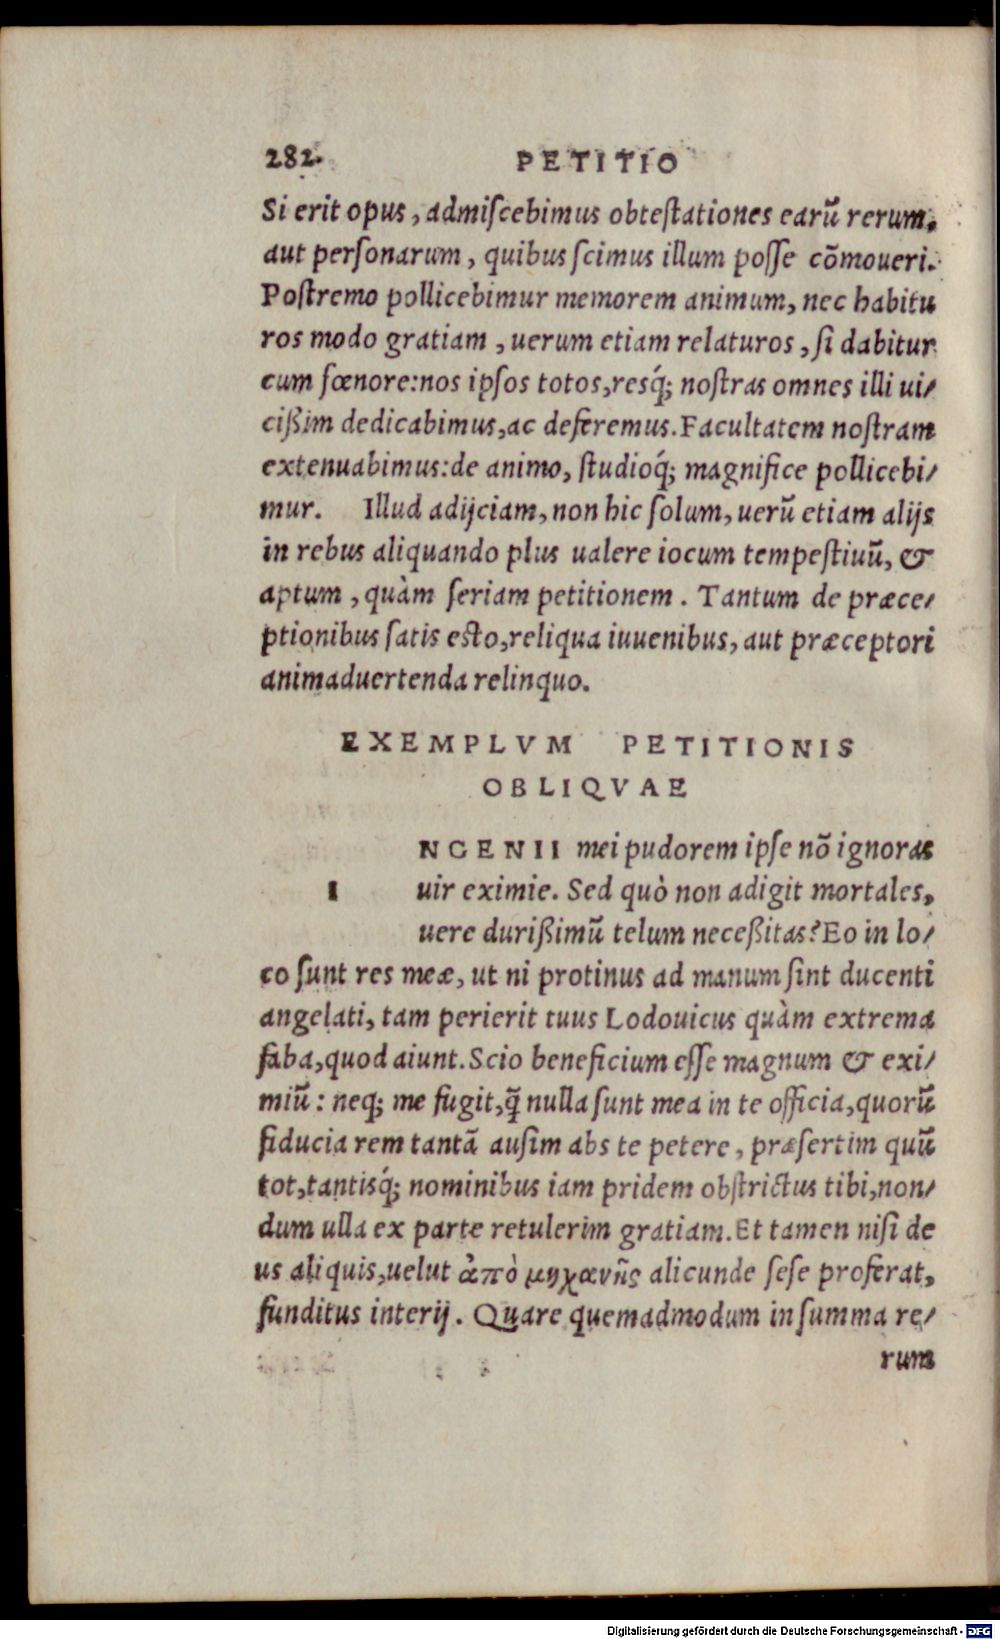 282. PETITIO
Si erit opus, admiſcebimus obteſtationes earũ rerum,
aut perſonarum, quibus ſcimus illum poſſe cõmoueri.
Poſtremo pollicebimur memorem animum, nec habitu
ros modo gratiam, uerum etiam relaturos, ſi dabitur
cum fœnore: nos ipſos totos, resq́; noſtras omnes illi ui/
cißim dedicabimus, ac deferemus. Facultatem noſtram
extenuabimus: de animo, ſtudioq́; magnifice pollicebi/
mur. Illud adijciam, non hic ſolum, uerũ etiam alijs
in rebus aliquando plus ualere iocum tempeſtiuũ, &
aptum, quàm ſeriam petitionem. Tantum de præce/
ptionibus ſatis eſto, reliqua iuuenibus, aut præceptori
animaduertenda relinquo.
EXEMPLVM PETITIONIS
OBLIQVAE
NGENII mei pudorem ipſe nõ ignoras
I uir eximie. Sed quò non adigit mortales,
uere durißimũ telum neceßitas? Eo in lo/
co ſunt res meæ, ut ni protinus ad manum ſint ducenti
angelati, tam perierit tuus Lodouicus quàm extrema
faba, quod aiunt. Scio beneficium eſſe magnum & exi/
miũ: neq; me fugit, q̃ nulla ſunt mea in te officia, quorũ
fiducia rem tantã auſim abs te petere, præſertim quũ
tot, tantisq́; nominibus iam pridem obſtrictus tibi, non/
dum ulla ex parte retulerim gratiam. Et tamen niſi de
us aliquis, uelut ἀπὸ μηχανῆς alicunde ſeſe proferat,
funditus interij. Quare quemadmodum in ſumma re/
rum
Digitalisierung gefördert durch die Deutsche Forschungsgemeinschaft - DFG